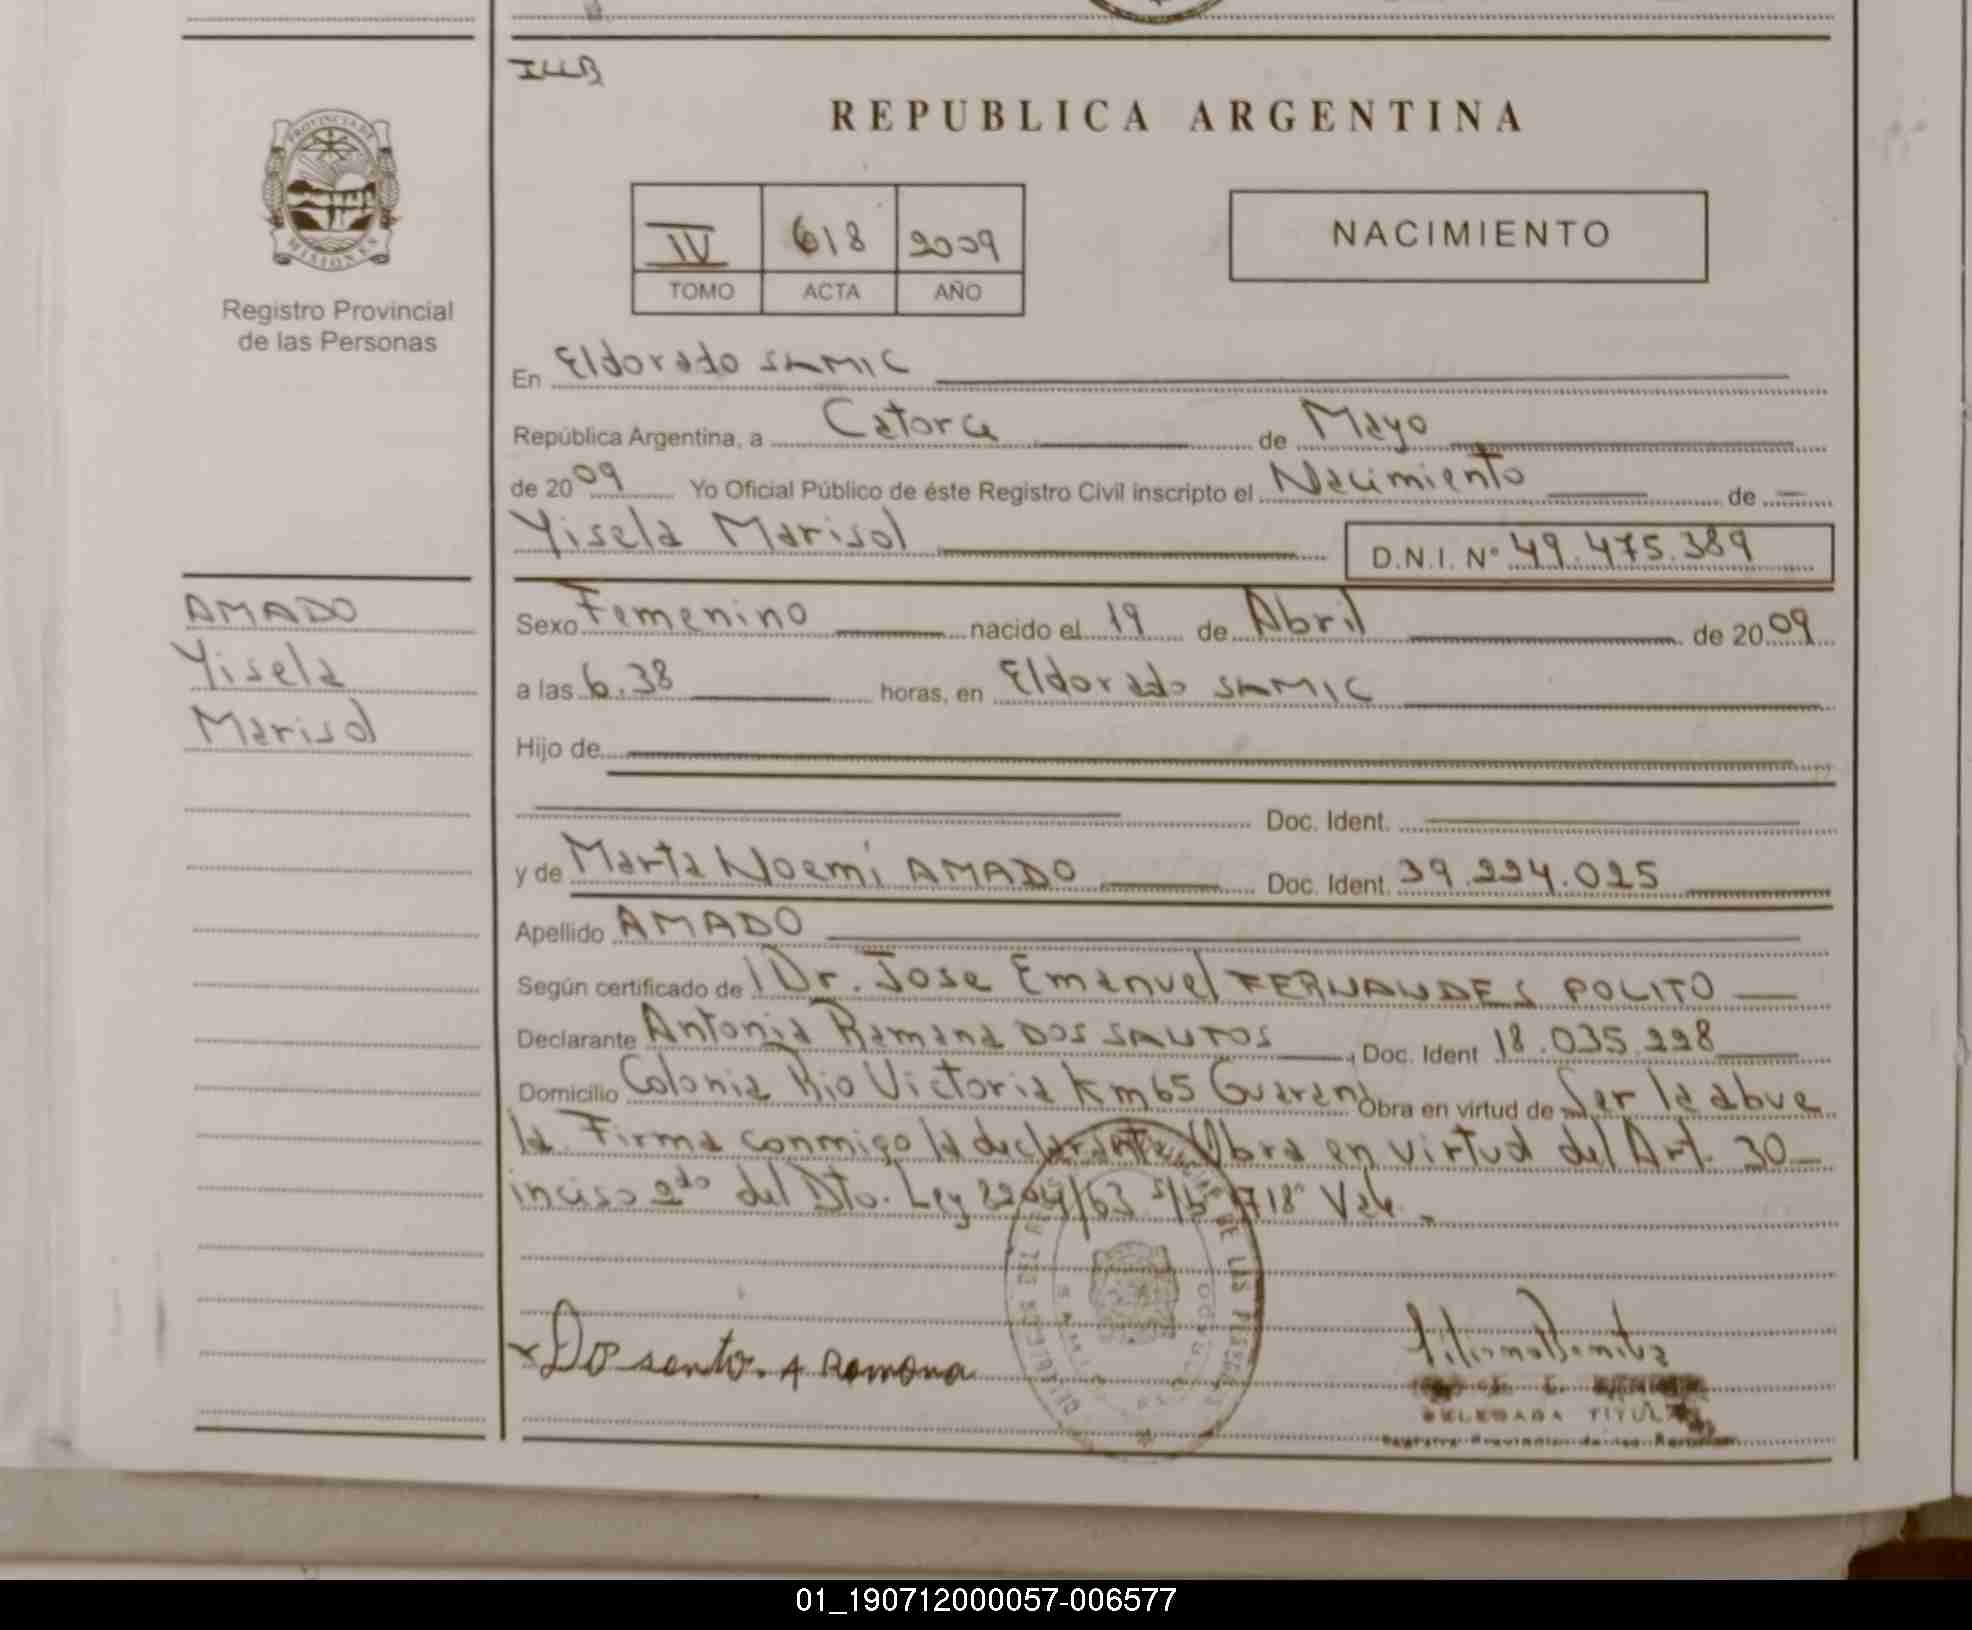 IUB
REPUBLICA ARGENTINA
PROVINCIA DE MISIONES
Registro Provincial
de las Personas
IV 618 2009
TOMO ACTA AÑO
NACIMIENTO
En Eldorado SAMIC
República Argentina, a Catorce de Mayo
de 2009 Yo Oficial Público de éste Registro Civil inscripto el Nacimiento de —
Yisela Marisol D.N.I. N° 49.475.389
AMADO
Yisela
Marisol
Sexo Femenino nacido el 19 de Abril de 2009
a las 6.38 horas, en Eldorado SAMIC
Hijo de
Doc. Ident.
y de Marta Noemí AMADO Doc. Ident. 39.224.025
Apellido AMADO
Según certificado de Dr. Jose Emanuel FERNANDES POLITO
Declarante Antonia Ramana DOS SANTOS Doc. Ident 18.035.228
Domicilio Colonia Rio Victoria Km65 Guarani Obra en virtud de Ser la abue
la. Firma conmigo la declarante. Obra en virtud del Art. 30
inciso 2do del Dto. Ley 2204/63 718° Vale.
DE LAS PERSONAS
Dosanto. A Ramona
DELEGADA TITULAR
Registro Provincial de las Personas
01_190712000057-006577